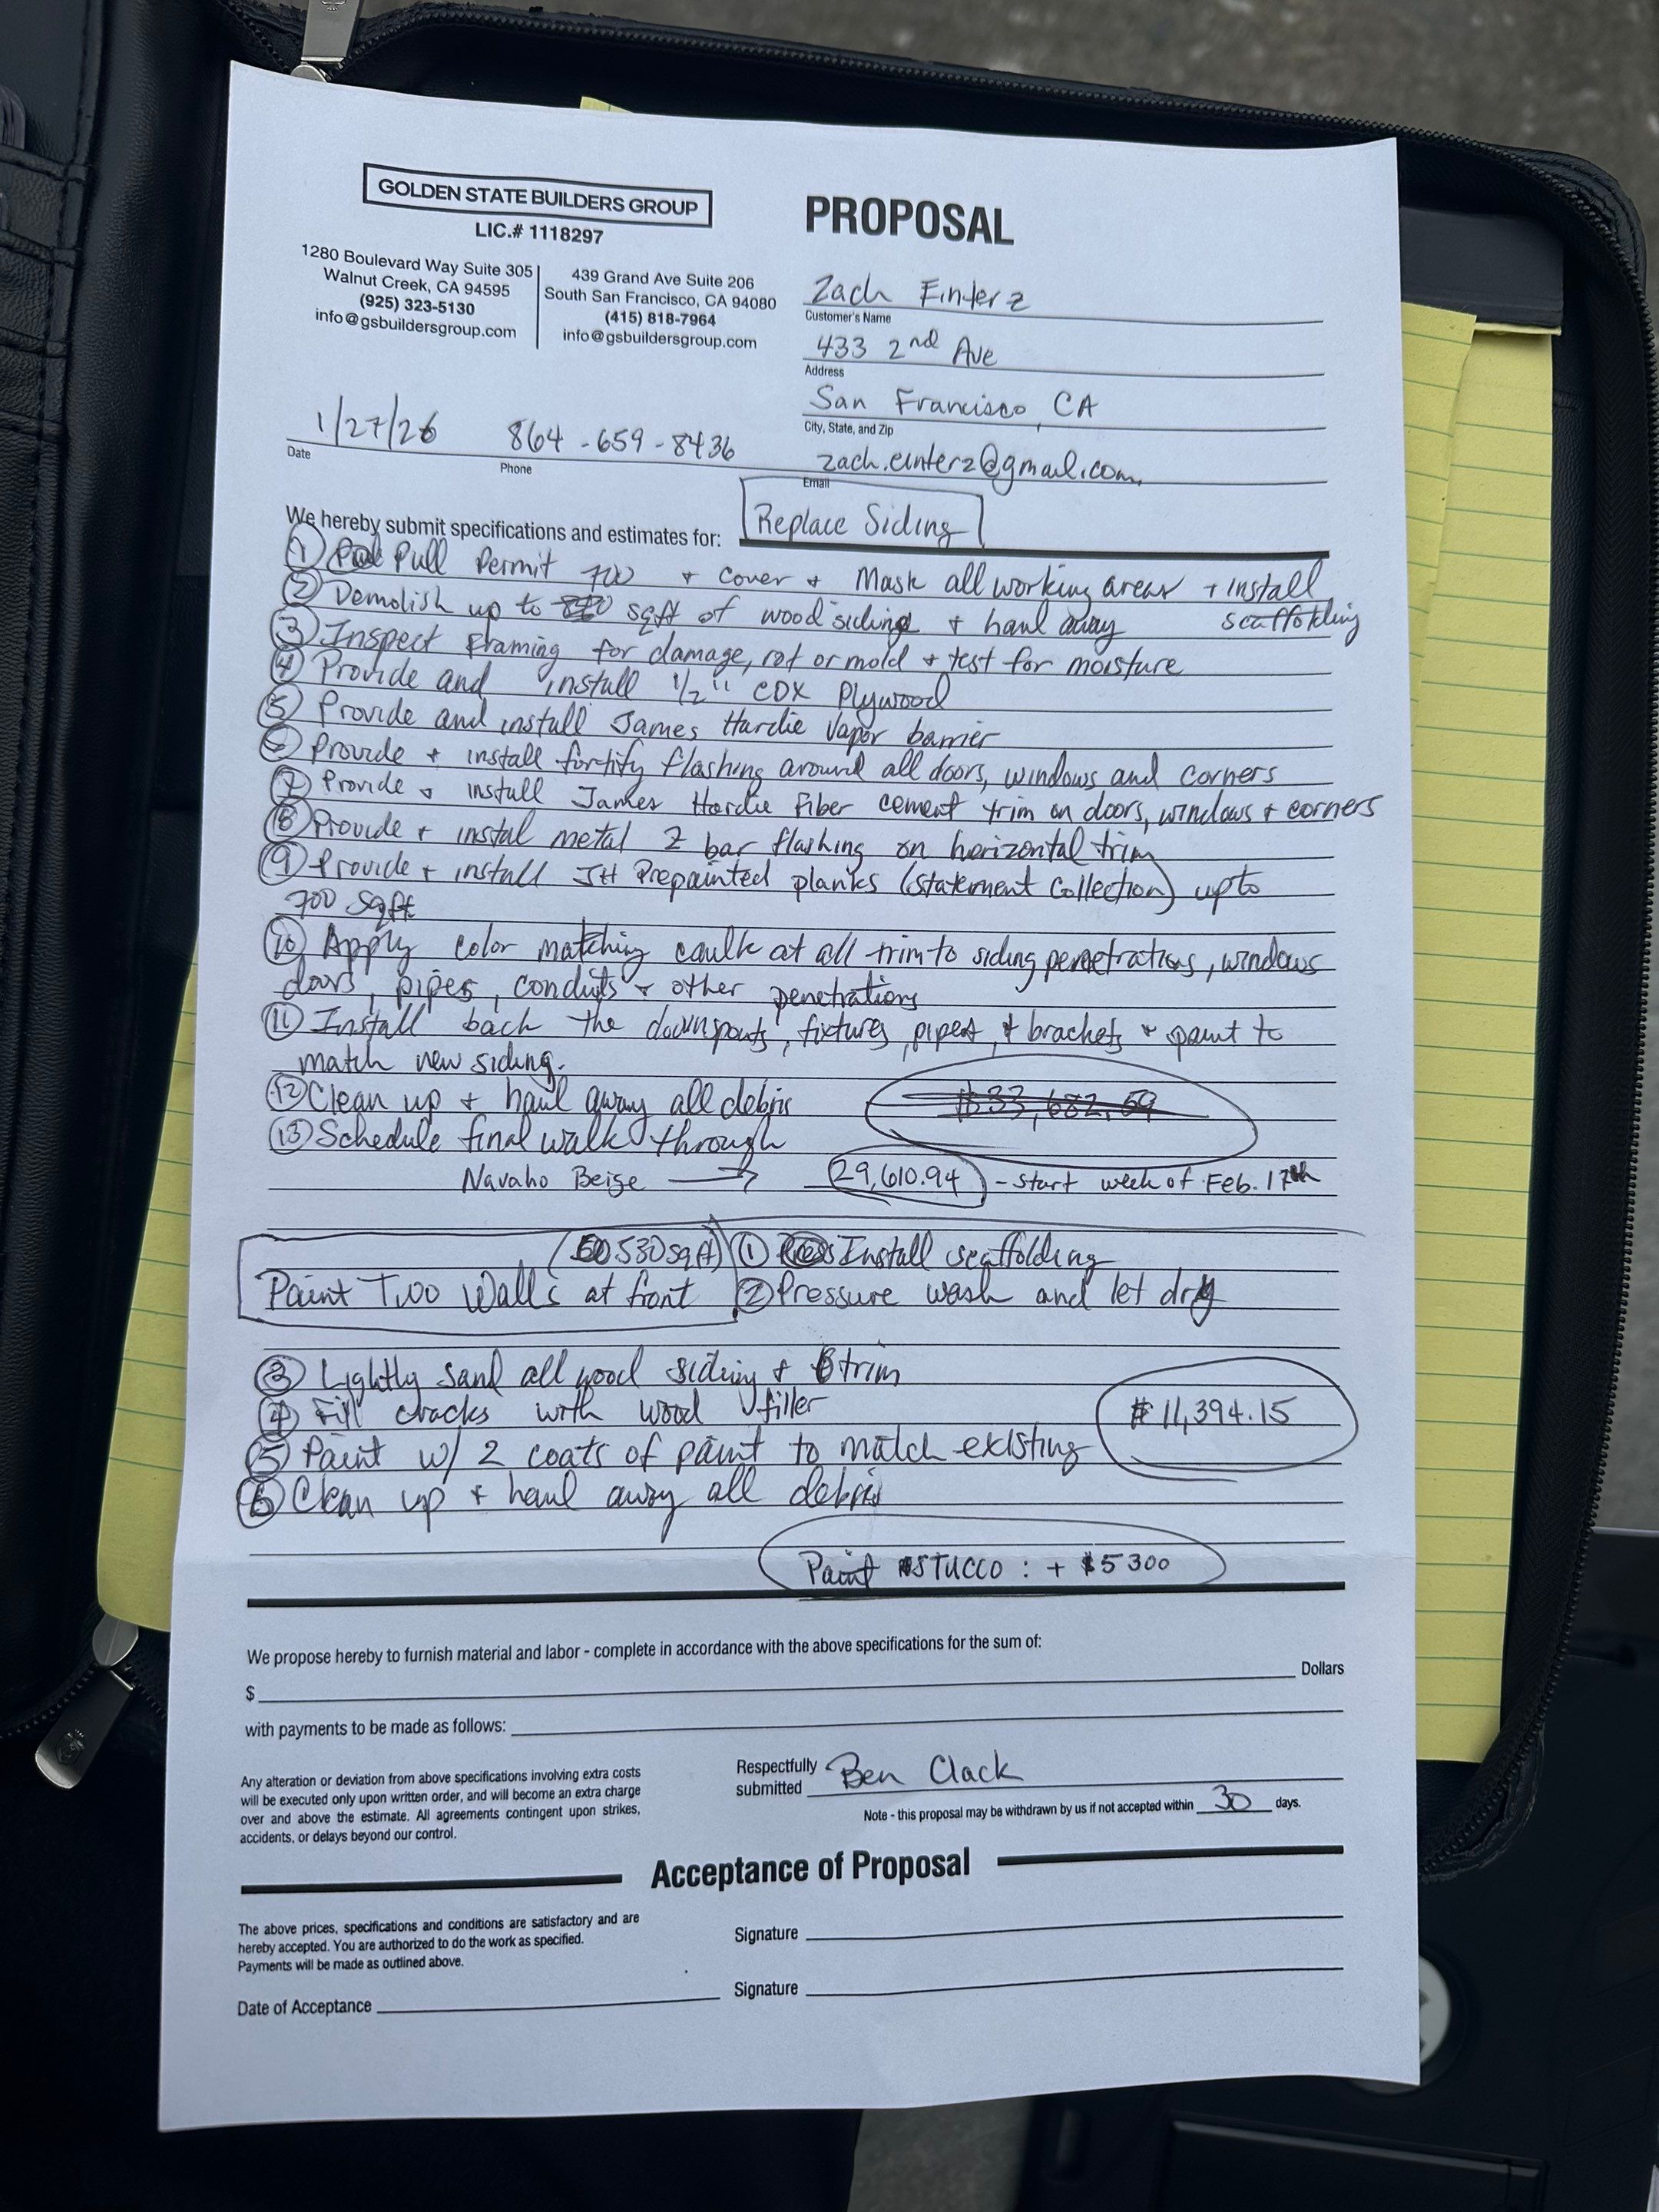 GOLDEN STATE BUILDERS GROUP
LIC.# 1118297
1280 Boulevard Way Suite 305
Walnut Creek, CA 94595
(925) 323-5130
info@gsbuildersgroup.com
439 Grand Ave Suite 206
South San Francisco, CA 94080
(415) 818-7964
info@gsbuildersgroup.com
PROPOSAL
Zach Einterz
Customer's Name
433 2nd Ave
Address
San Francisco, CA
City, State, and Zip
zach.einterz@gmail.com
Email
1/27/26
Date
864-659-8436
Phone
We hereby submit specifications and estimates for: Replace Siding
① Pull Permit + cover + Mask all working areas + install
scaffolding
② Demolish up to 700 sqft of wood siding + haul away
③ Inspect Framing for damage, rot or mold + test for moisture
④ Provide and install 1/2" CDX Plywood
⑤ Provide and install James Hardie Vapor barrier
⑥ Provide + install fortify flashing around all doors, windows and corners
⑦ Provide + install James Hardie Fiber cement trim on doors, windows + corners
⑧ Provide + instal metal Z bar flashing on horizontal trim
⑨ Provide + install JH Prepainted planks (Statement Collection) up to
700 Sqft
⑩ Apply color matching caulk at all trim to siding penetrations, windows
doors, pipes, conduits + other penetrations
⑪ Install back the downspouts, fixtures, pipes, + brackets + paint to
match new siding.
⑫ Clean up + haul away all debris $33,682.69
⑬ Schedule final walk through
Navaho Beige → 29,610.94 - start week of Feb. 17th
(530 sqft) ① Install scaffolding
Paint Two Walls at front ② Pressure wash and let dry
③ Lightly Sand all wood siding + trim
④ Fill cracks with wood filler
$11,394.15
⑤ Paint w/ 2 coats of paint to match existing
⑥ Clean up + haul away all debris
Paint STUCCO : + $5300
We propose hereby to furnish material and labor - complete in accordance with the above specifications for the sum of:
$ Dollars
with payments to be made as follows:
Any alteration or deviation from above specifications involving extra costs
will be executed only upon written order, and will become an extra charge
over and above the estimate. All agreements contingent upon strikes,
accidents, or delays beyond our control.
Respectfully
submitted Ben Clack
Note - this proposal may be withdrawn by us if not accepted within 30 days.
Acceptance of Proposal
The above prices, specifications and conditions are satisfactory and are
hereby accepted. You are authorized to do the work as specified.
Payments will be made as outlined above.
Date of Acceptance
Signature
Signature